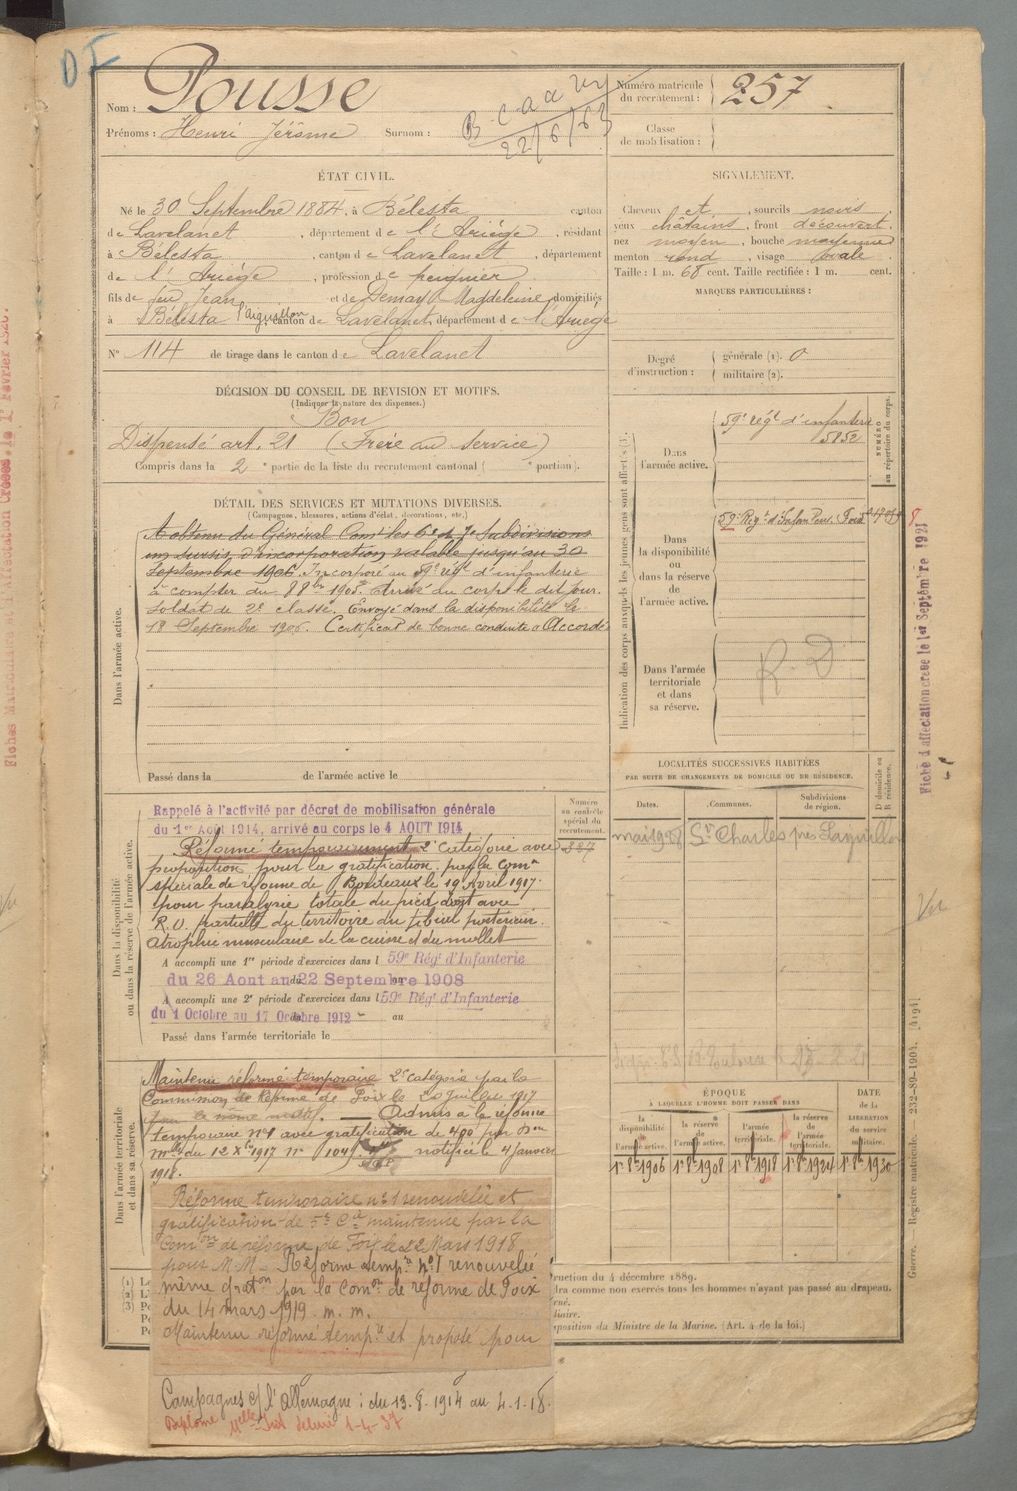 DF
Nom : Pousse
Prénoms : Henri Jérôme Surnom :
22/6/63
Numéro matricule du recrutement : 257
Classe de mobilisation :
ÉTAT CIVIL.
Né le 30 Septembre 1884, à Bélesta canton
de Lavelanet, département de l'Ariège, résidant
à Bélesta, canton de Lavelanet, département
de l'Ariège, profession de peignier
fils de feu Jean et de Demay Magdeleine, domiciliés
à Bélesta l'aiguillon canton de Lavelanet, département de l'Ariège
N° 114 de tirage dans le canton de Lavelanet
SIGNALEMENT.
Cheveux et, sourcils noirs
yeux châtains, front découvert
nez moyen, bouche moyenne
menton rond, visage ovale
Taille : 1 m. 68 cent. Taille rectifiée : 1 m. cent.
MARQUES PARTICULIÈRES :
Degré d'instruction : générale (1). 0
militaire (2).
DÉCISION DU CONSEIL DE REVISION ET MOTIFS.
(Indiquer la nature des dispenses.)
Bon
Dispensé art. 21 (Frère au service)
Compris dans la 2e partie de la liste du recrutement cantonal ( portion).
DÉTAIL DES SERVICES ET MUTATIONS DIVERSES.
(Campagnes, blessures, actions d'éclat, décorations, etc.)
Dans l'armée active.
A obtenu du Général Comt les 6e et 7e Subdivisions
un sursis d'incorporation valable jusqu'au 30
Septembre 1906. Incorporé au 59e régt d'infanterie
à compter du 8 8bre 1905. Arrivé au corps le dit jour.
Soldat de 2e classe. Envoyé dans la disponibilité le
18 Septembre 1906. Certificat de bonne conduite "Accordé
Passé dans la de l'armée active le
Indication des corps auxquels les jeunes gens sont affectés (3).
NUMÉRO au répertoire du corps.
Dans l'armée active.
59e régt d'infanterie
5852
Dans la disponibilité ou dans la réserve de l'armée active.
59e Regt d'Infan
Dans l'armée territoriale et dans sa réserve.
R. D
LOCALITÉS SUCCESSIVES HABITÉES
PAR SUITE DE CHANGEMENTS DE DOMICILE OU DE RÉSIDENCE.
Dates. Communes. Subdivisions de région. D domicile ou R résidence.
mai 1908 St Charles près
Dans la disponibilité ou dans la réserve de l'armée active.
Numéro au contrôle spécial du recrutement.
Rappelé à l'activité par décret de mobilisation générale
du 1er Août 1914, arrivé au corps le 4 AOUT 1914
Réformé temporairement 2e catégorie avec
proposition pour la gratification par la Comon
spéciale de réforme de Bordeaux le 19 Avril 1917.
pour paralysie totale du pied droit avec
R. D. partielle du territoire du tibial postérieur.
atrophie musculaire de la cuisse et du mollet
A accompli une 1re période d'exercices dans l 59e Régt d'Infanterie
du 26 Aout au 22 Septembre 1908
A accompli une 2e période d'exercices dans l 59e Régt d'Infanterie
du 1 Octobre au 17 Octobre 1912 au
Passé dans l'armée territoriale le
Dans l'armée territoriale et dans sa réserve.
Maintenu réformé temporaire 2e catégorie par la
Commission de Réforme de Foix le 20 Juillet 1917
Admis à la réforme
temporaire N°1 avec gratification de 400 par Don
mlle du 12 Xbre 1917 n° notifiée le 4 Janvier
1918.
ÉPOQUE
À LAQUELLE L'HOMME DOIT PASSER DANS
la disponibilité de l'armée active. la réserve de l'armée active. l'armée territoriale. la réserve de l'armée territoriale. DATE de la LIBÉRATION du service militaire.
1er 8bre 1906 1er 8bre 1908 1er 8bre 1918 1er 8bre 1924 1er 8bre 1930
Réforme temporaire n°1 renouvelée et
gratification de 5e Cie maintenue par la
Comon de réforme de Foix le 22 Mars 1918
pour M. M. Réforme tempre n°1 renouvelée
même gration par la Comon de réforme de Foix
du 14 mars 1919. m. m.
Maintenu réformé tempre et proposé pour
ruction du 4 décembre 1889.
dra comme non exercés tous les hommes n'ayant pas passé au drapeau.
sposition du Ministre de la Marine. (Art. 4 de la loi.)
Campagnes c/ l'Allemagne : du 13.8.1914 au 4.1.18.
Diplôme
Fiche d'affectation créée le 1er Septembre 1921
Vu
Guerre. — Registre matricule. — 232-89-1904. [4194]